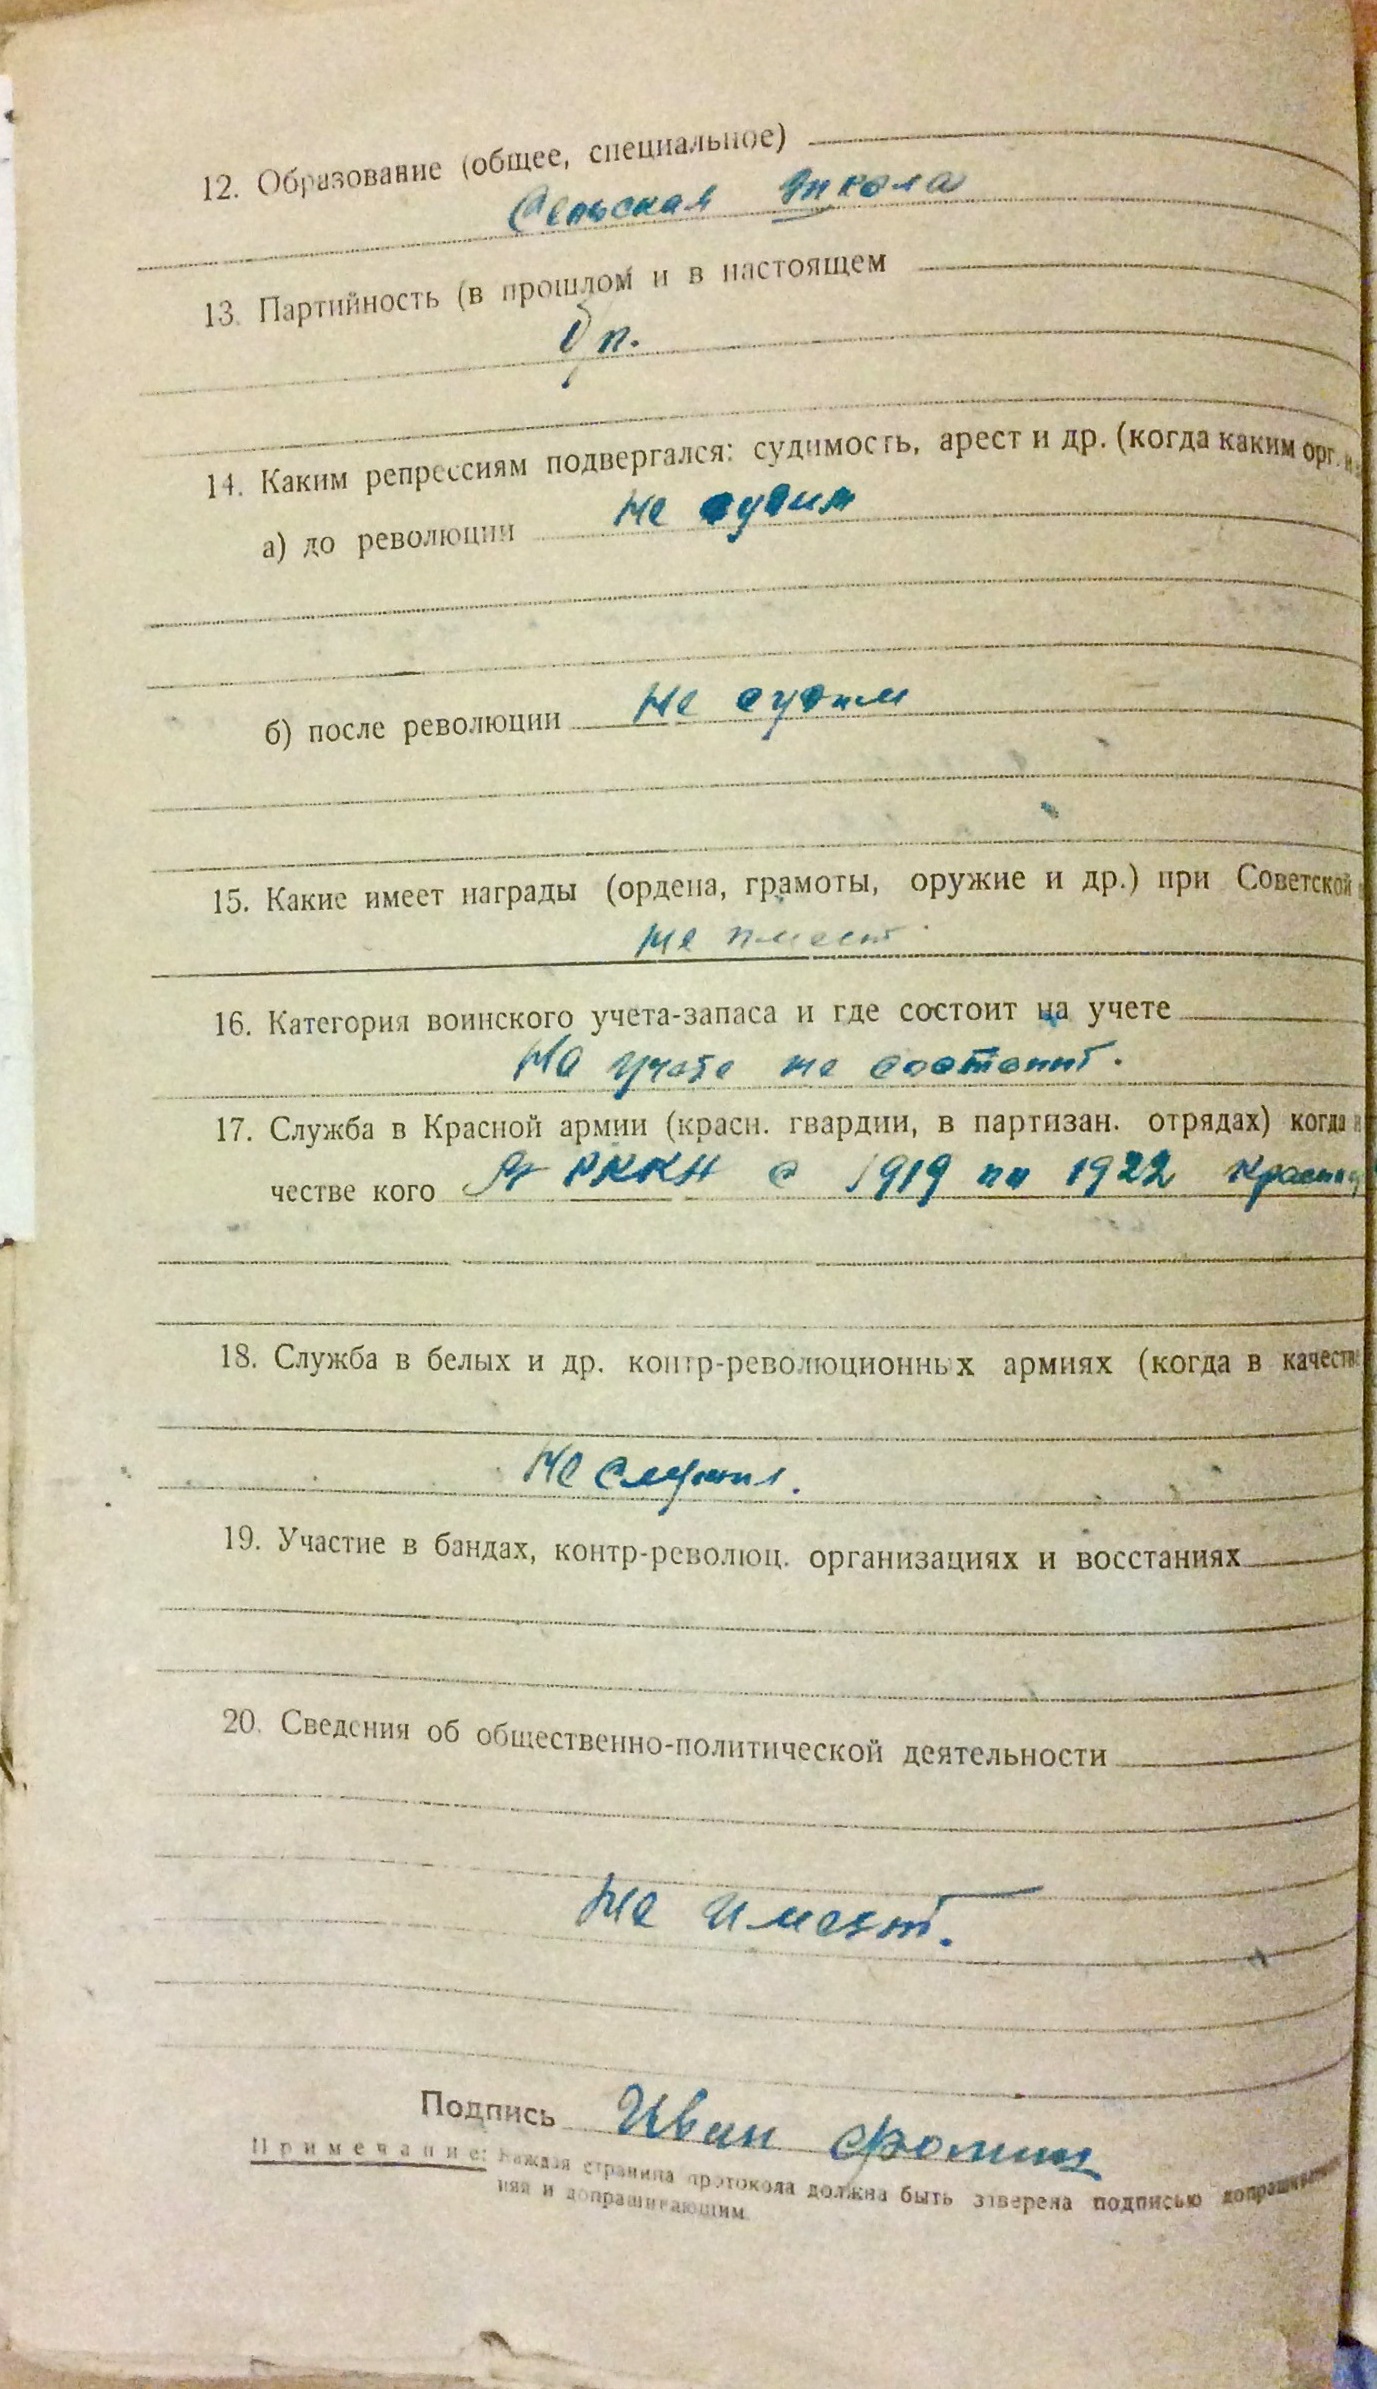 12. Образование (общее, специальное)
Сельская школа
13. Партийность (в прошлом и в настоящем
б/п.
14. Каким репрессиям подвергался: судимость, арест и др. (когда каким орг.
Не судим
а) до революции
б) после революции Не судим
15. Какие имеет награды (ордена, грамоты, оружие и др.) при Советской
не имеет
16. Категория воинского учета-запаса и где состоит на учете
На учете не состоит.
17. Служба в Красной армии (красн. гвардии, в партизан. отрядах) когда
честве кого В РККА с 1919 по 1922
18. Служба в белых и др. контр-революционных армиях (когда в качестве
Не служил.
19. Участие в бандах, контр-революц. организациях и восстаниях
20. Сведения об общественно-политической деятельности
Не имеет.
Подпись Иван Фомин
Примечание: Каждая страница протокола должна быть заверена подписью
и допрашивающим.